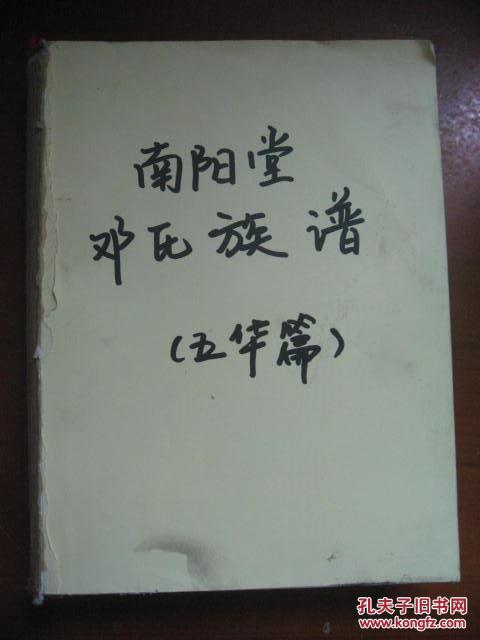 南阳堂
邓氏族谱
(五华篇)
孔夫子旧书网
www.kongfz.com